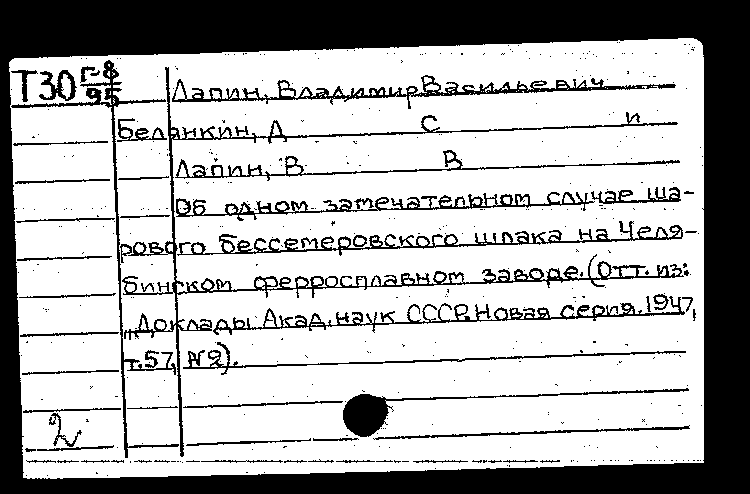 Т30 Г-8/95 Лапин, Владимир Васильевич
Белянкин, Д С и
Лапин, В В
Об одном замечательном случае ша-
рового бессемеровского шлака на Челя-
бинском ферросплавном заводе. (Отт. из:
"Доклады Акад. наук СССР. Новая серия. 1947,
т. 57, №2).
2